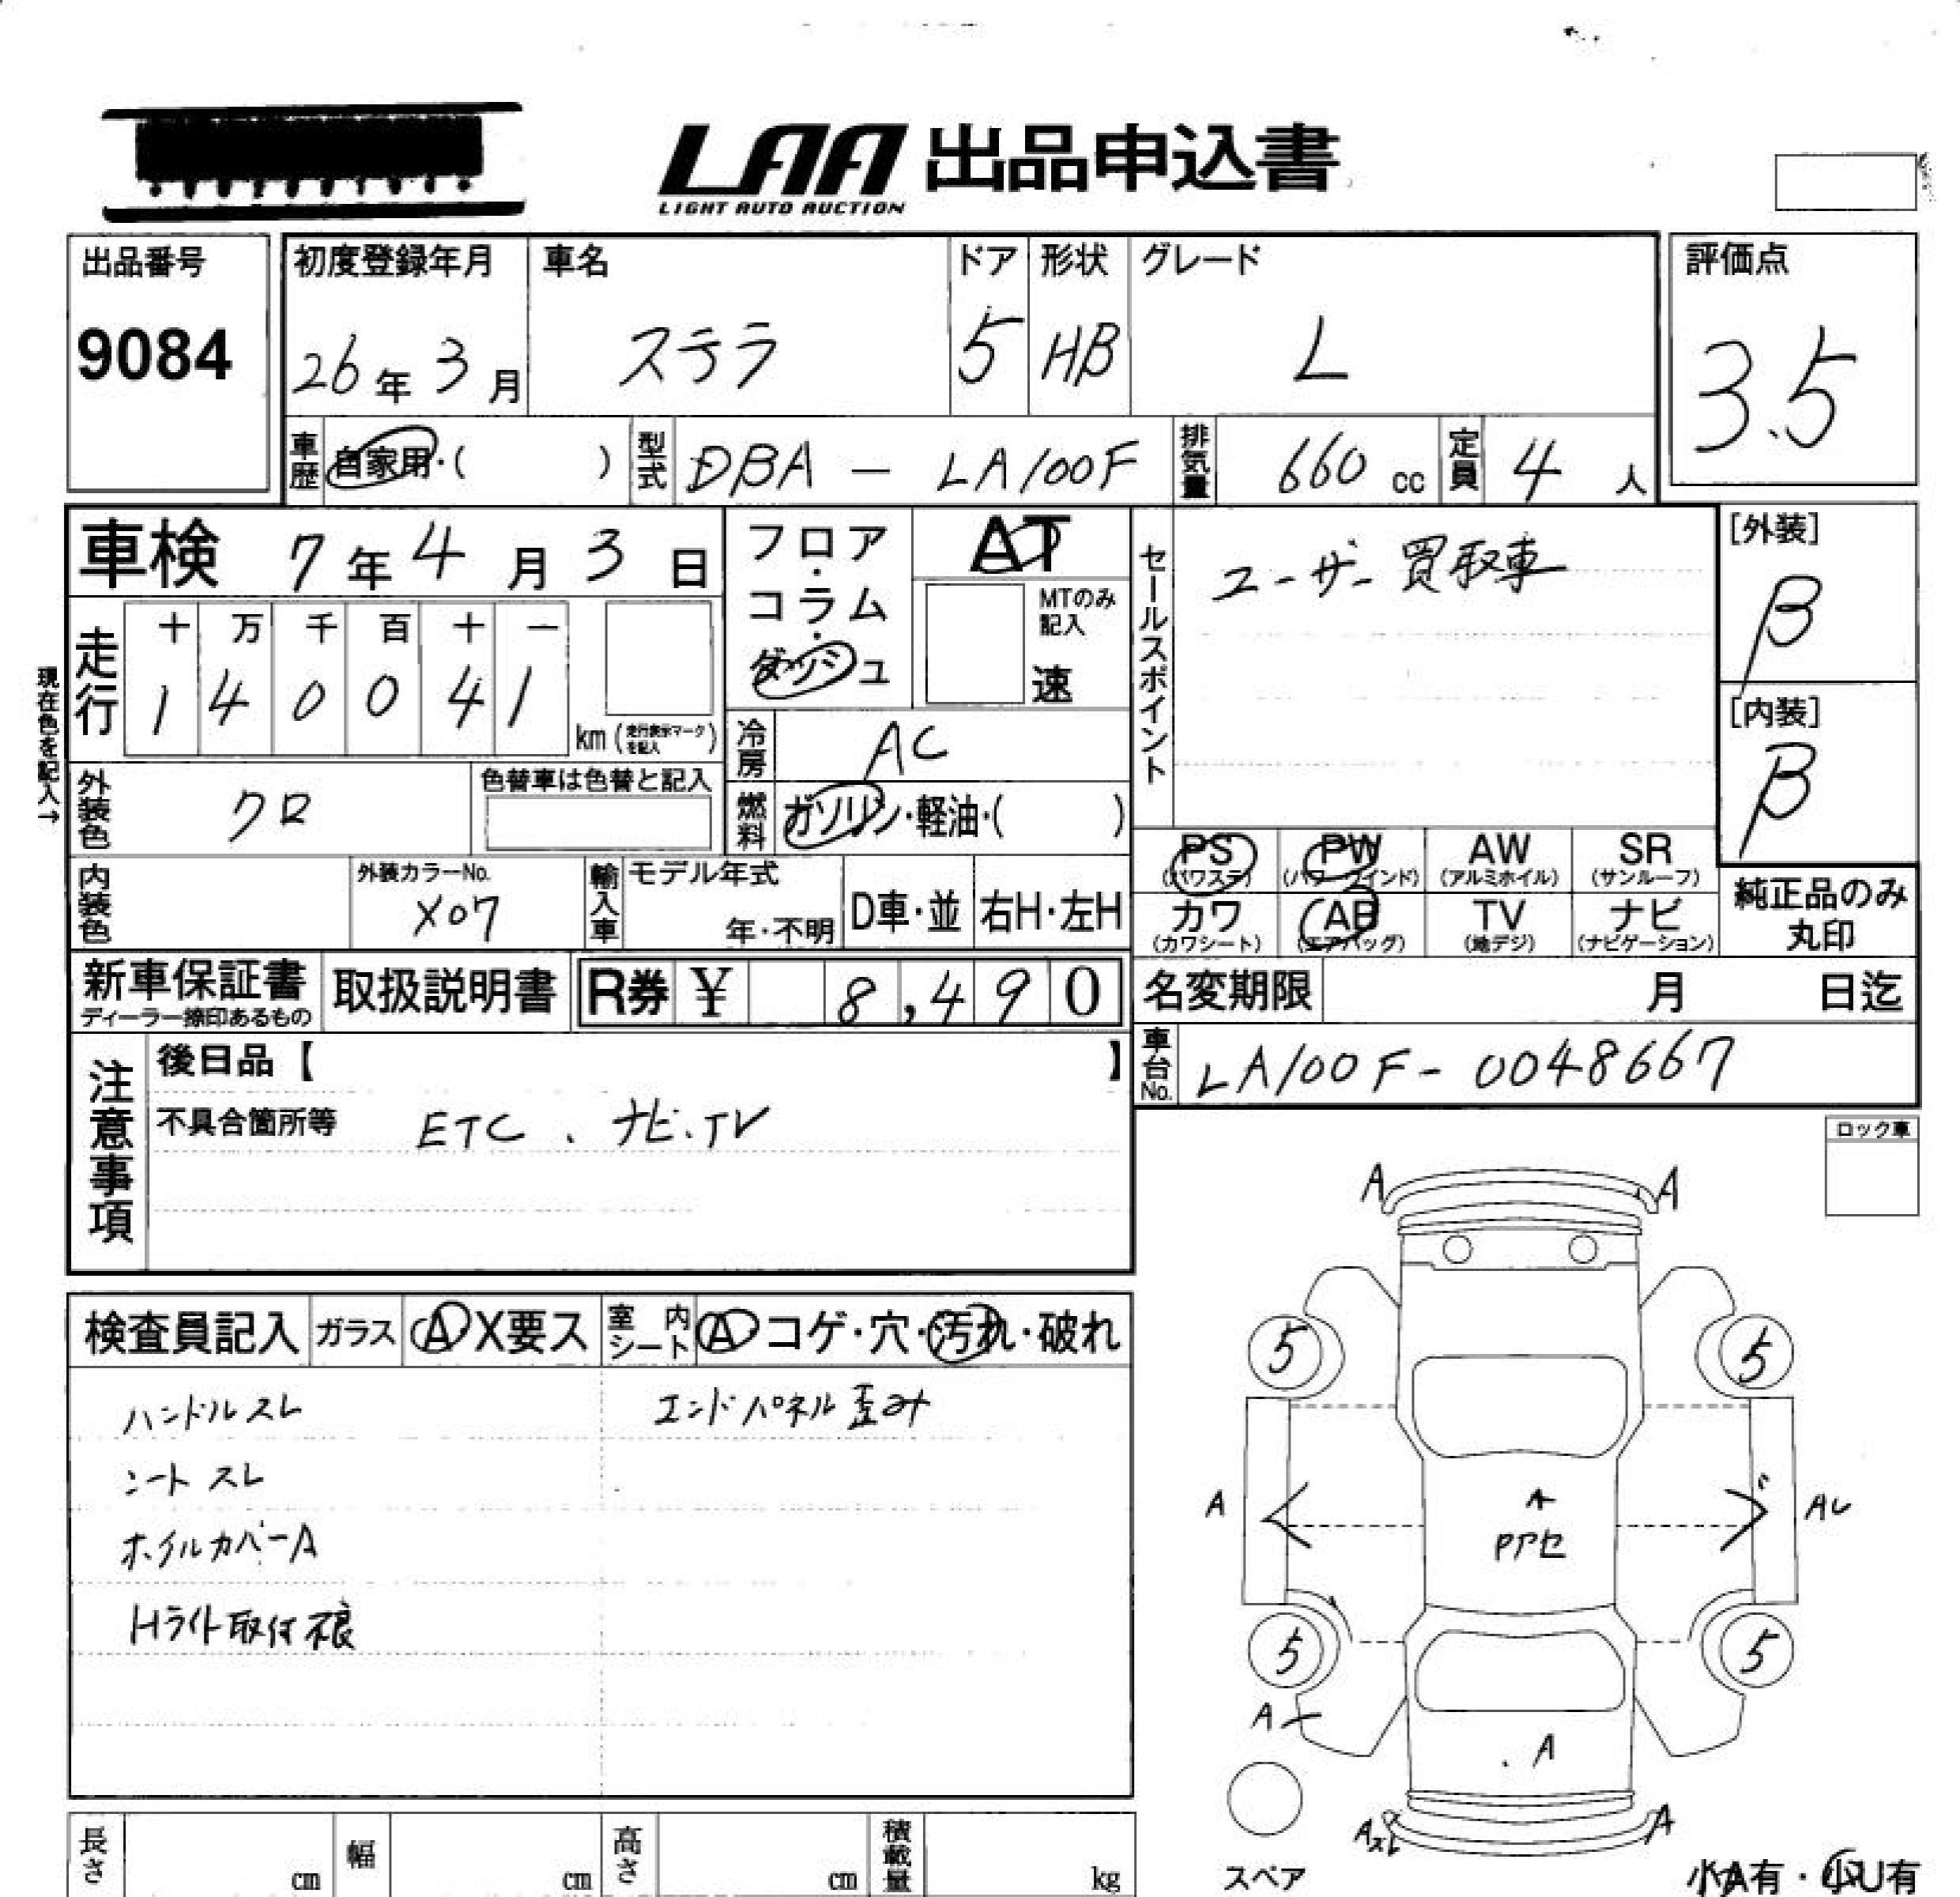 LAA 出品申込書
LIGHT AUTO AUCTION
出品番号
9084
初度登録年月
26年3月
車名
ステラ
ドア
5
形状
HB
グレード
L
評価点
3.5
車歴 自家用・( )
型式 DBA - LA100F
排気量 660 cc
定員 4 人
車検 7年4月3日
フロア・コラム・ダッシュ
AT
MTのみ記入
速
セールスポイント
ユーザー買取車
[外装]
B
[内装]
B
現在色を記入→
走行
十 万 千 百 十 一
1 4 0 0 4 1
km (走行表示マークを記入)
冷房 AC
外装色 クロ
色替車は色替と記入
燃料 ガソリン・軽油・( )
PS (パワステ)
PW (パワーウインド)
AW (アルミホイル)
SR (サンルーフ)
カワ (カワシート)
AB (エアバッグ)
TV (地デジ)
ナビ (ナビゲーション)
純正品のみ丸印
内装色
外装カラーNo.
X07
輸入車
モデル年式
年・不明
D車・並
右H・左H
新車保証書
ディーラー捺印あるもの
取扱説明書
R券 ¥ 8,490
名変期限 月 日迄
車台No. LA100F-0048667
注意事項
後日品【 】
不具合箇所等 ETC、ナビ、TV
ロック車
検査員記入
ガラス A X要ス
室内シート A コゲ・穴・汚れ・破れ
ハンドルスレ
シートスレ
ホイルカバーA
Hライト取付不良
エンドパネル歪み
A A
5 5
A A Pアセ
5 5
A
A
A
A
スペア
小A有・小U有
長さ cm
幅 cm
高さ cm
積載量 kg